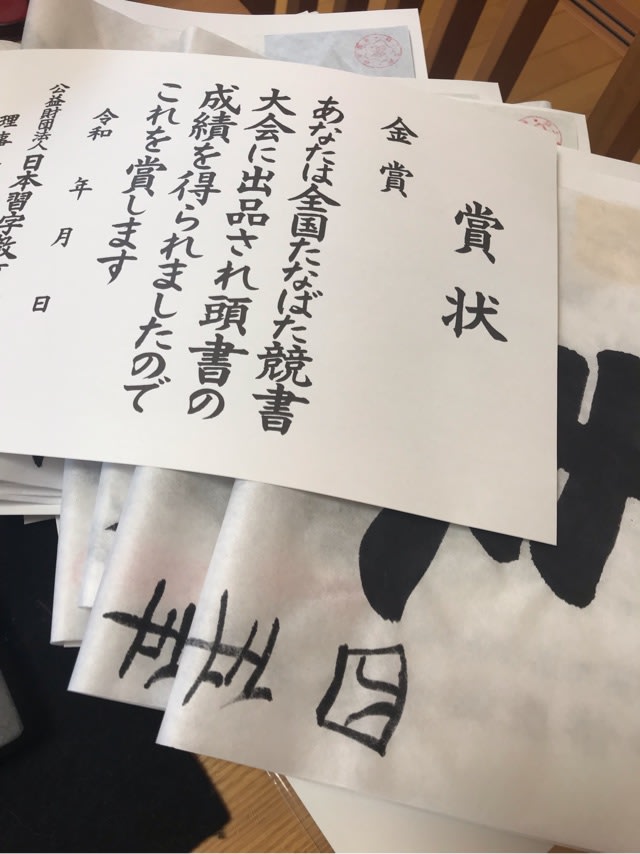 賞状
金賞
あなたは全国たなばた競書
大会に出品され頭書の
成績を得られましたので
これを賞します
令和 年 月 日
公益財団法人 日本習字教
理事
四年